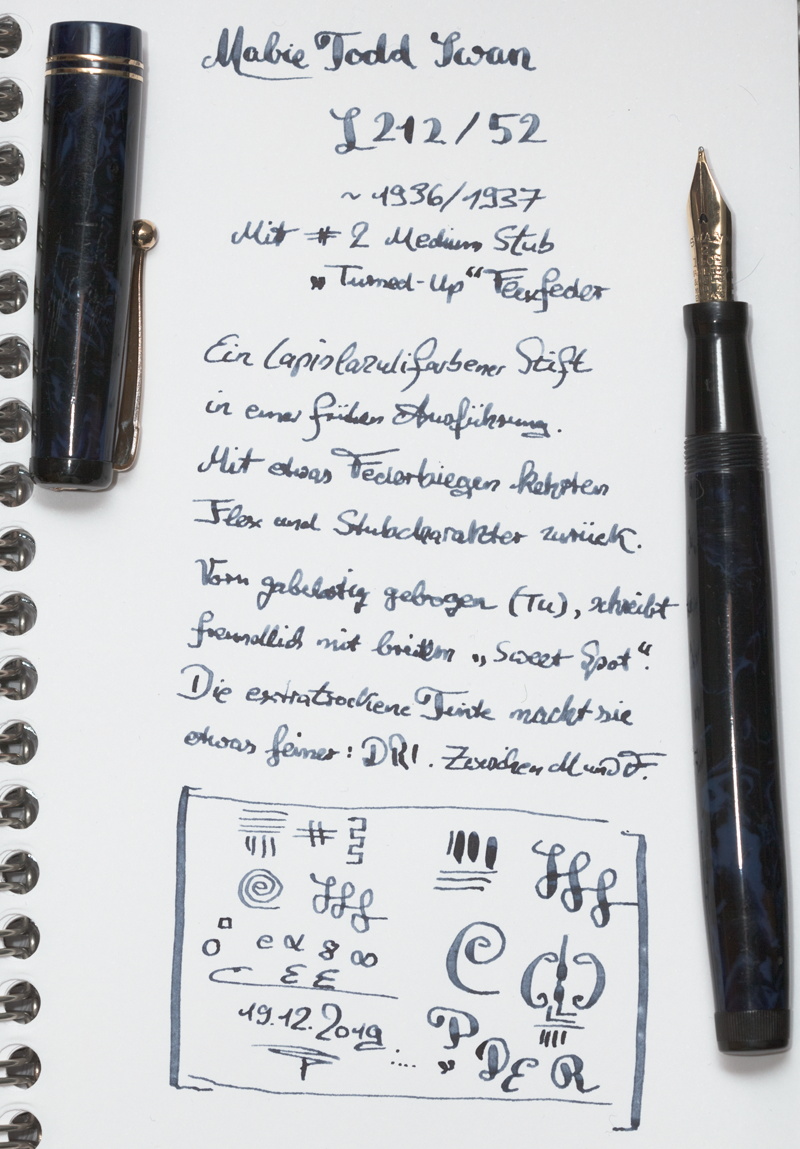 Mabie Todd Swan
L212/52
~ 1936/1937
Mit # 2 Medium Stub
„Turned-Up“ Flexfeder
Ein Lapislazulifarbener Stift
in einer frühen Ausführung.
Mit etwas Federbiegen kehrten
Flex und Stubcharakter zurück.
Vorn gabelartig gebogen (Tu), schreibt
freundlich mit breitem „Sweet Spot“.
Die extratrockene Tinte macht sie
etwas feiner: DRI. Zwischen M und F.
19.12.2019